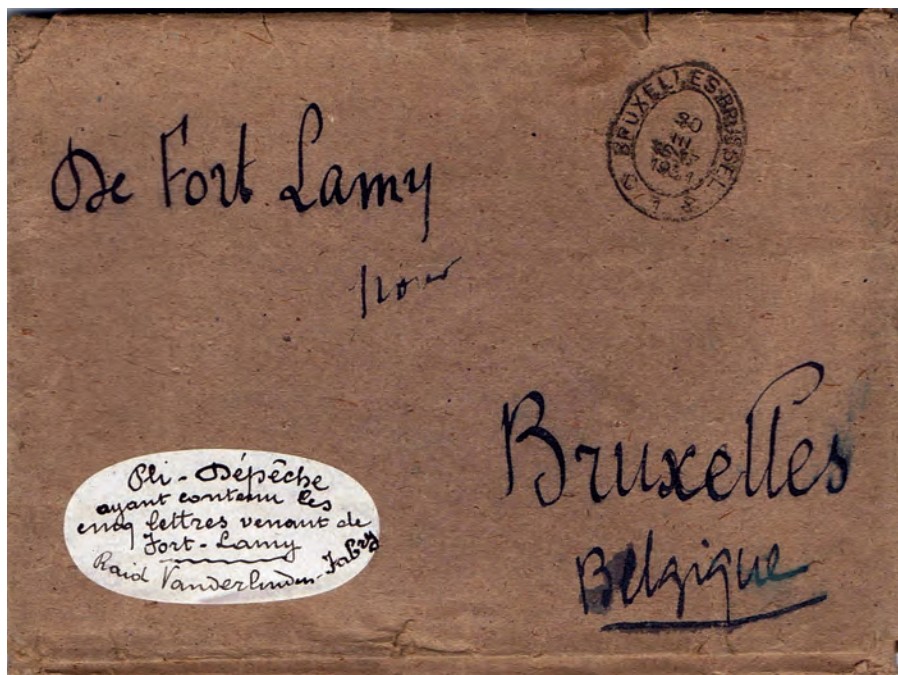 BRUXELLES-BRUSSEL
De Fort Lamy
pour
Bruxelles
Belgique
Pli - Dépêche
ayant contenu les
cinq lettres venant de
Fort-Lamy
Raid Vanderlinden-Fabry